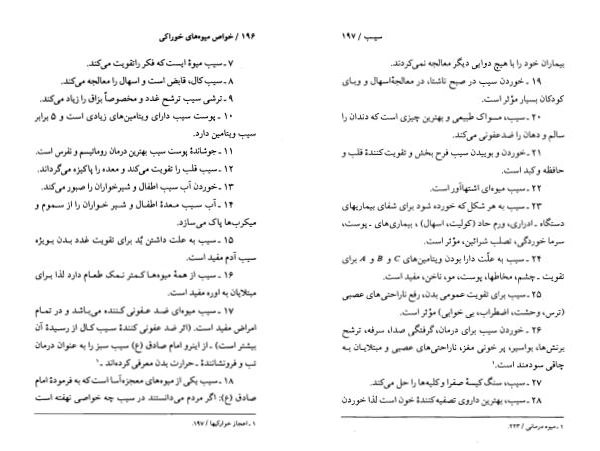 ۱۹۶ / خواص میوه‌های خوراکی
۷ ـ سیب میوهٔ ایست که فکر راتقویت می‌کند.
۸ ـ سیب کال، قابض است و اسهال را معالجه می‌کند.
۹ ـ ترشی سیب ترشح غدد و مخصوصاً بزاق را زیاد می‌کند.
۱۰ ـ پوست سیب دارای ویتامین‌های زیادی است و ۵ برابر
سیب ویتامین دارد.
۱۱ ـ جوشاندهٔ پوست سیب بهترین درمان روماتیسم و نقرس است.
۱۲ ـ سیب قلب را تقویت می‌کند و معده را پاکیزه می‌گرداند.
۱۳ ـ خوردن آب سیب اطفال و شیرخواران را صبور می‌کند.
۱۴ ـ آب سیب معدهٔ اطفال و شیر خواران را از سموم و
میکرب‌ها پاک می‌سازد.
۱۵ ـ سیب به علت داشتن ید برای تقویت غدد بدن بویژه
سیب آدم مفید است.
۱۶ ـ سیب از همهٔ میوه‌ها کمتر نمک طعام دارد لذا برای
مبتلایان به اوره مفید است.
۱۷ ـ سیب میوه‌ای ضد عفونی کننده می‌باشد و در تمام
امراض مفید است. (اثر ضد عفونی کنندهٔ سیب کال از رسیدهٔ آن
بیشتر است) ـ از اینرو امام صادق (ع) سیب سبز را به عنوان درمان
تب و فرونشانندهٔ ـ حرارت بدن معرفی کرده‌اند ـ¹
۱۸ ـ سیب یکی از میوه‌های معجزه‌آسا است که به فرمودهٔ امام
صادق (ع): اگر مردم می‌دانستند در سیب چه خواصی نهفته است
۱ ـ اعجاز خوراکیها / ۱۹۷.
سیب / ۱۹۷
بیماران خود را با هیچ دوایی دیگر معالجه نمی‌کردند.
۱۹ ـ خوردن سیب در صبح ناشتا، در معالجهٔ اسهال و وبای
کودکان بسیار مؤثر است.
۲۰ ـ سیب، مسواک طبیعی و بهترین چیزی است که دندان را
سالم و دهان را ضدعفونی می‌کند.
۲۱ ـ خوردن و بوییدن سیب فرح بخش و تقویت کنندهٔ قلب و
حافظه و کبد است.
۲۲ ـ سیب میوه‌ای اشتهاآور است.
۲۳ ـ سیب به هر شکل که خورده شود برای شفای بیماریهای
دستگاه ـ ادراری، ورم حاد (کولیت، اسهال) ، بیماری‌های ـ پوست،
سرما خوردگی، تصلب شرائین، مؤثر است.
۲۴ ـ سیب به علّت دارا بودن ویتامین‌های C و B و A برای
تقویت ـ چشم، مخاطها، پوست، مو، ناخن، مفید است.
۲۵ ـ سیب برای تقویت عمومی بدن، رفع ناراحتی‌های عصبی
(ترس، وحشت، اضطراب، بی خوابی) مؤثر است.
۲۶ ـ خوردن سیب برای درمان، گرفتگی صدا، سرفه، ترشح
برنش‌ها، بواسیر، پر خونی مغز، ناراحتی‌های عصبی و مبتلایان به
چاقی سودمند است.¹
۲۷ ـ سیب، سنگ کیسهٔ صفرا و کلیه‌ها را حل می‌کند.
۲۸ ـ سیب، بهترین داروی تصفیه‌کنندهٔ خون است لذا خوردن
۱ ـ میوه درمانی / ۲۲۳.